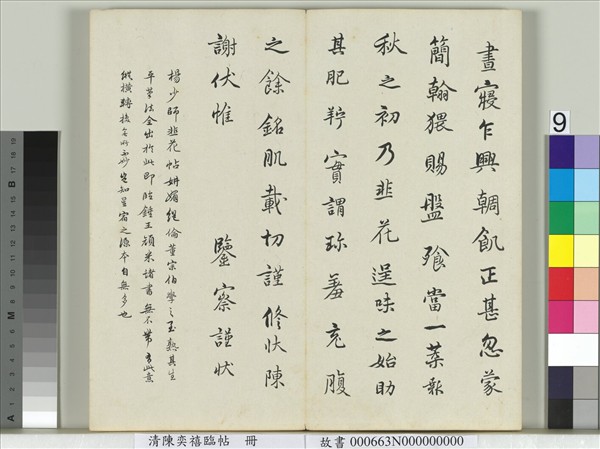 晝寢乍興輖飢正甚忽蒙
簡翰猥賜盤飱當一葉報
秋之初乃韭花逞味之始助
其肥羜實謂珍羞充腹
之餘銘肌載切謹修狀陳
謝伏惟　　　鑒察謹狀
楊少師韭花帖妍媚絕倫董宗伯學之至熟其生
平筆法全出於此即臨鍾王顏米諸書無不帶
縱橫轉換之源本自無多也
清陳奕禧臨帖　冊
故書 000663N000000000
9
A 1 2 3 4 5 6 7 M 8 9 10 11 12 13 14 15 B 17 18 19